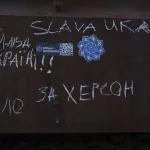 SLAVA UKRA
СЛАВА
УКРАЇНІ!!!
ЗА ХЕРСОН
ЛО